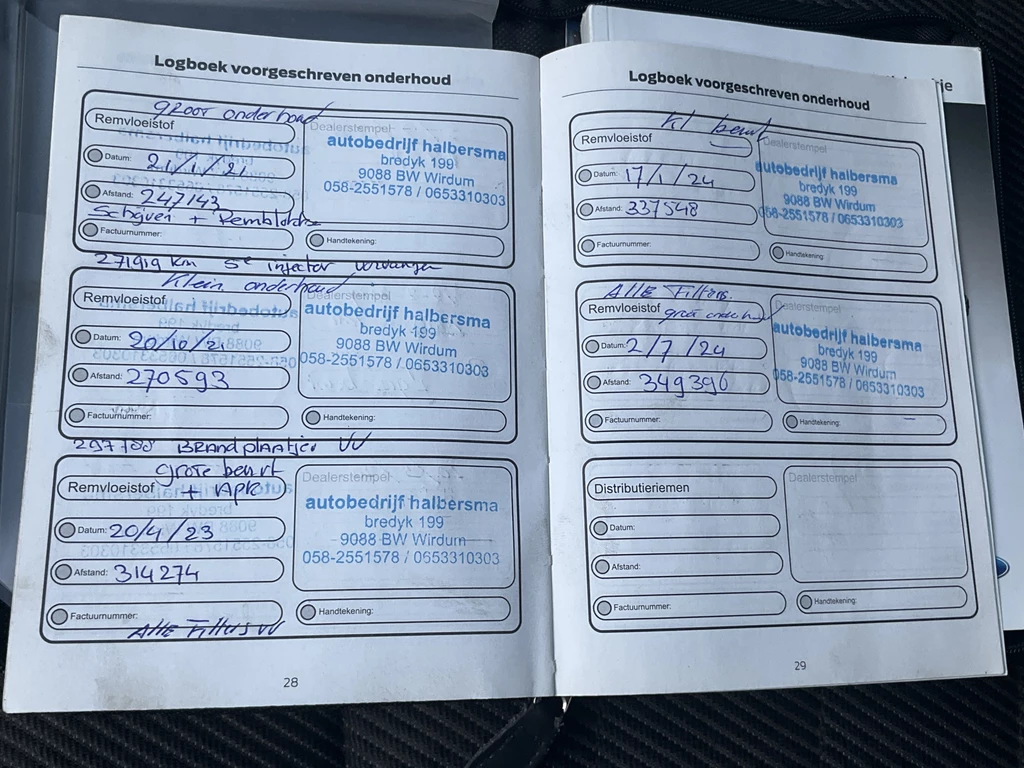 Logboek voorgeschreven onderhoud
groot onderhoud
Remvloeistof
Dealerstempel
autobedrijf halbersma
bredyk 199
9088 BW Wirdum
058-2551578 / 0653310303
Datum: 21/1/21
Afstand: 247143
Schijven + Remblokken
Factuurnummer:
Handtekening:
271919 km 5e injector vervangen
Klein onderhoud
Remvloeistof
Dealerstempel
autobedrijf halbersma
bredyk 199
9088 BW Wirdum
058-2551578 / 0653310303
Datum: 20/10/21
Afstand: 270593
Factuurnummer:
Handtekening:
297700 Brandplaatjes VV
grote beurt
Remvloeistof + Apk
Dealerstempel
autobedrijf halbersma
bredyk 199
9088 BW Wirdum
058-2551578 / 0653310303
Datum: 20/4/23
Afstand: 314274
Factuurnummer:
Handtekening:
Alle Filters VV
28
Logboek voorgeschreven onderhoud
Kl beurt
Remvloeistof
Dealerstempel
autobedrijf halbersma
bredyk 199
9088 BW Wirdum
058-2551578 / 0653310303
Datum: 17/1/24
Afstand: 337548
Factuurnummer:
Handtekening:
Alle Filters.
Remvloeistof groot onderhoud
Dealerstempel
autobedrijf halbersma
bredyk 199
9088 BW Wirdum
058-2551578 / 0653310303
Datum: 2/7/24
Afstand: 349396
Factuurnummer:
Handtekening:
Distributieriemen
Dealerstempel
Datum:
Afstand:
Factuurnummer:
Handtekening:
29